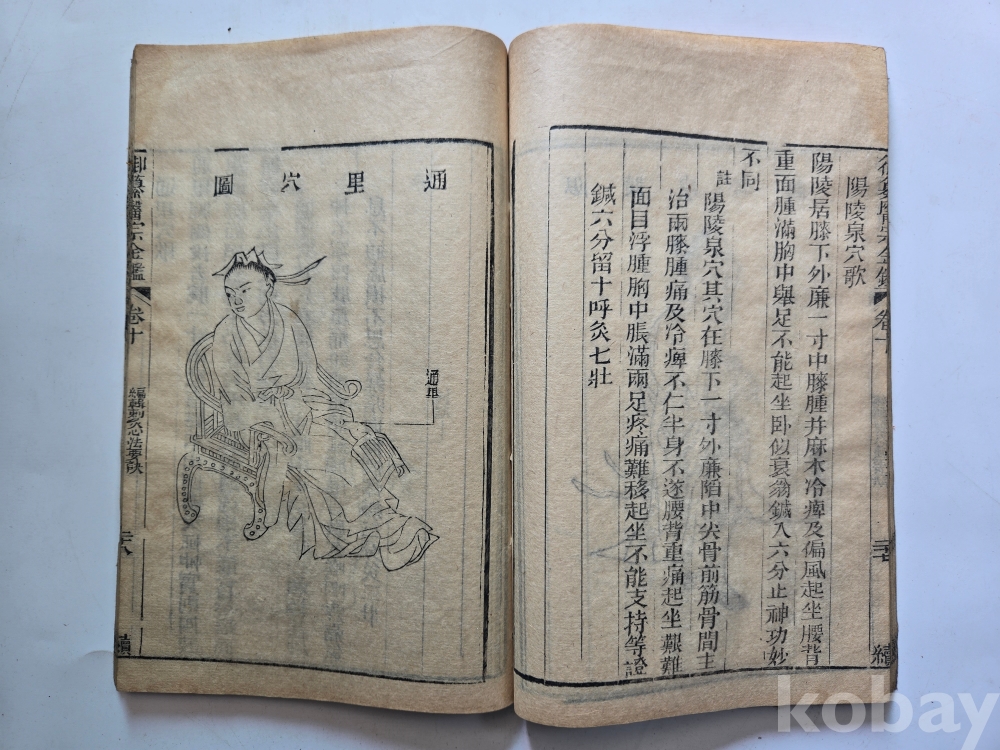 陽陵泉穴歌
陽陵居膝下外廉一寸中膝腫并麻木冷痺及偏風起坐腰背
重面腫滿胸中舉足不能起坐卧似衰翁鍼入六分止神功妙
不同
註
陽陵泉穴其穴在膝下一寸外廉陷中尖骨前筋骨間主
治兩膝腫痛及冷痺不仁半身不遂腰背重痛起坐艱難
面目浮腫胸中脹滿兩足疼痛難移起坐不能支持等證
鍼六分留十呼灸七壯
續
通里穴圖
通里
御纂醫宗金鑑
卷十
編輯刺灸心法要訣
二十八
續
kobay